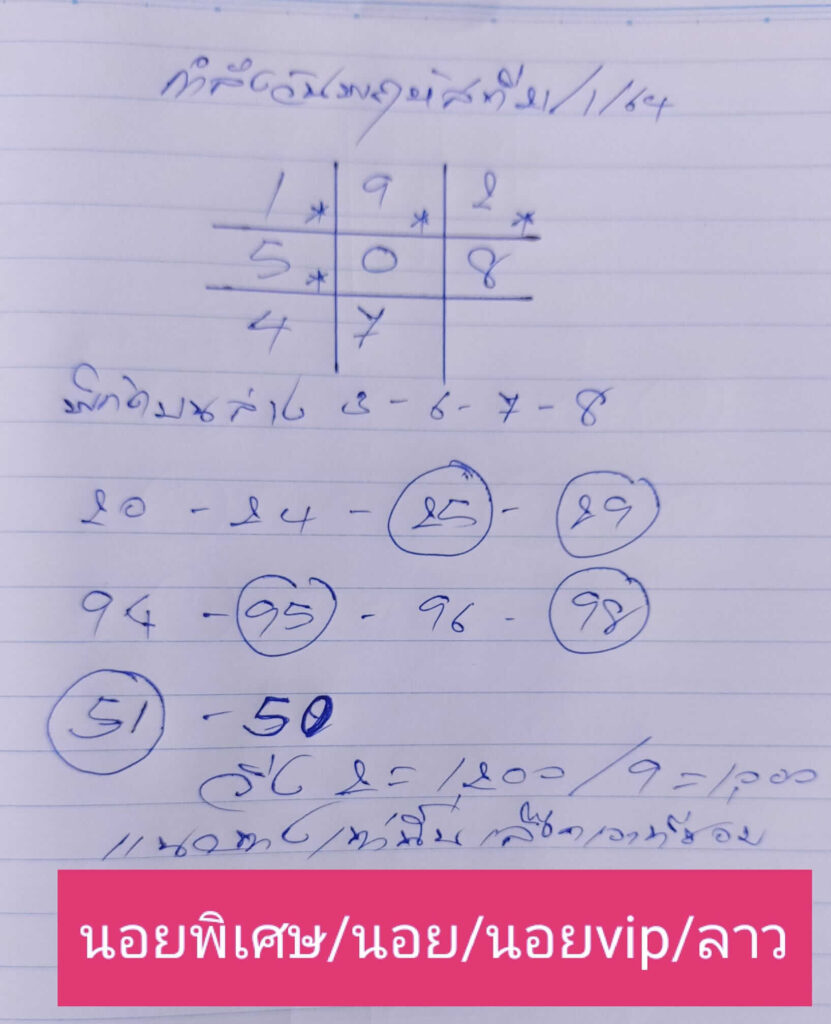 กำลังวันพฤหัสที่21/1/64
1* 9* 2*
5* 0 8
4 7
พิกัดบนล่าง 3-6-7-8
20-24-25-29
94-95-96-98
51-50
วิ่ง 2=1,200/9=1,000
แนวทางเท่านั้นเลือกเอาที่ชอบ
นอยพิเศษ/นอย/นอยvip/ลาว